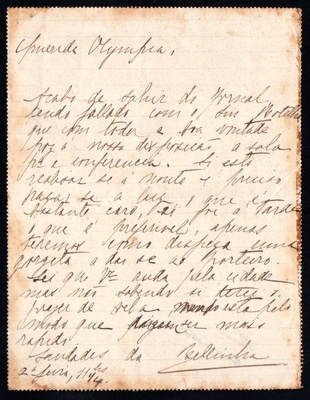 Querida Olympia,
Acabo de sahir do Jornal
tendo fallado com o Snr
que com toda a boa vontade
poz a nossa disposição a sala
pª a conferencia. Si esta
realisar-se á noute é preciso
pagar-se a luz, o que é
bastante caro, si fôr á tarde
o que é preferivel, apenas
teremos como despeza uma
gorgeta a dar-se ao porteiro.
Sei que Vcê anda pela cidade
mas não sabendo si terei o
prazer de vel-a mando esta pelo
modo que mais
rapido
Saudades da Bellinha
2ª feira, 11 hs